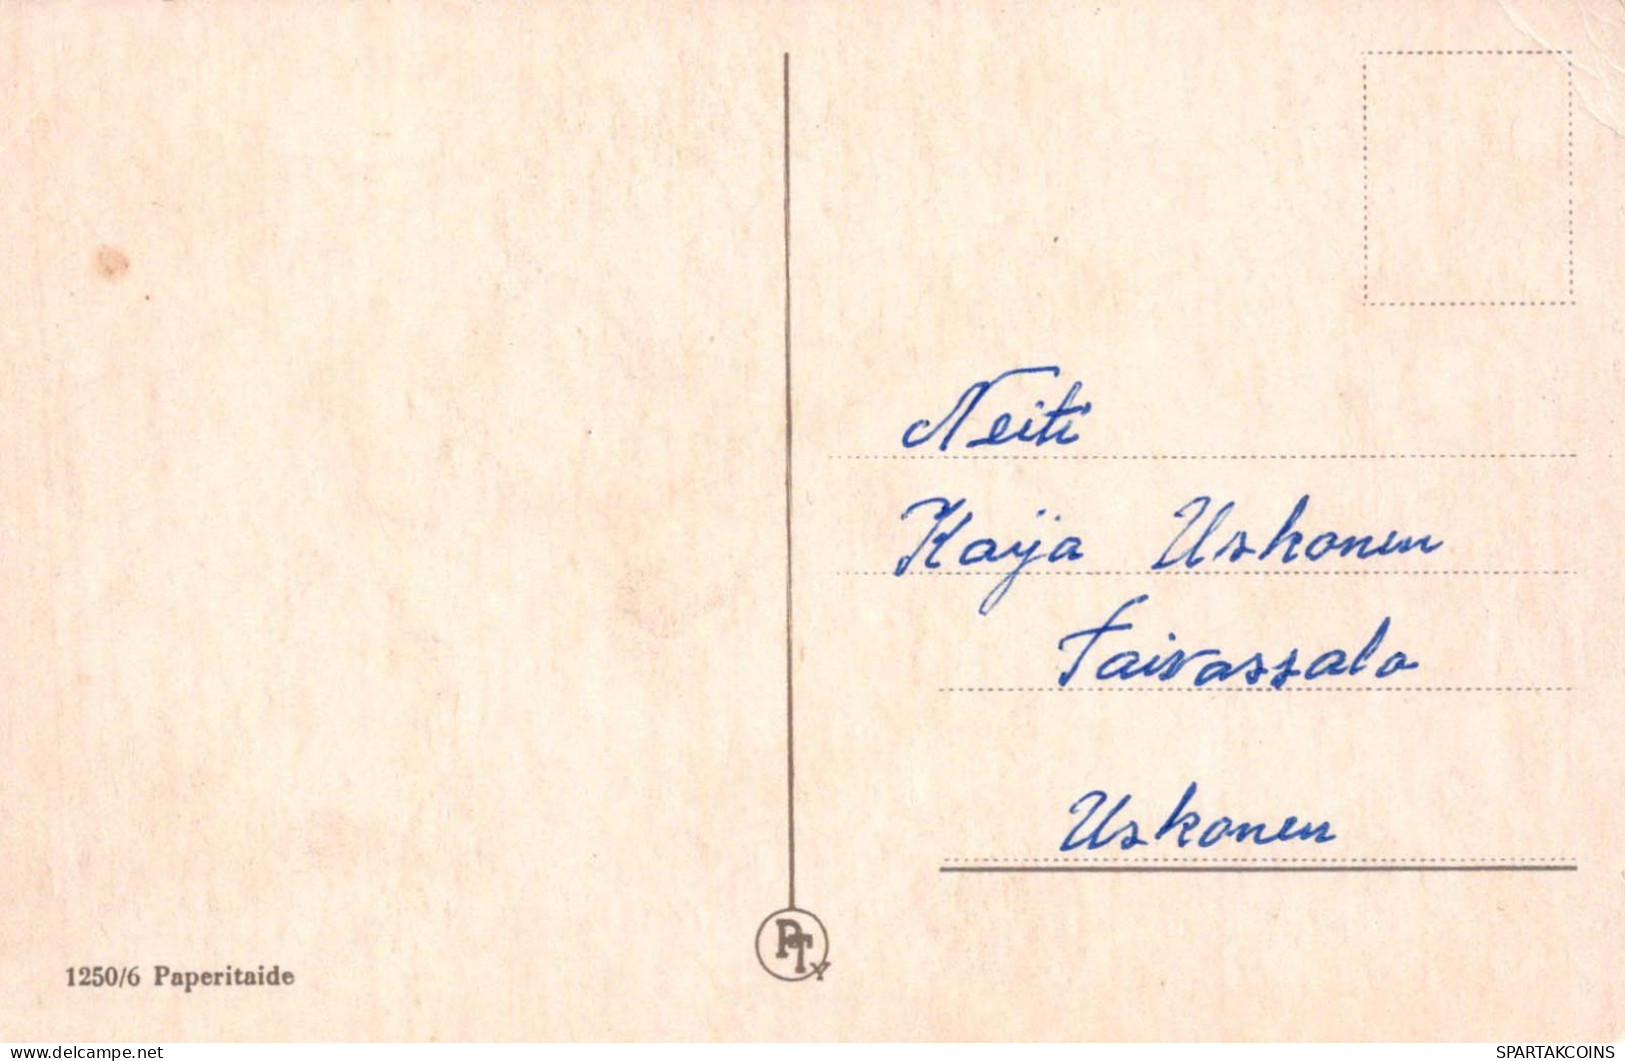 Neiti
Kaija Uskonen
Taivassalo
Uskonen
PTY
1250/6 Paperitaide
delcampe.net
SPARTAKCOINS